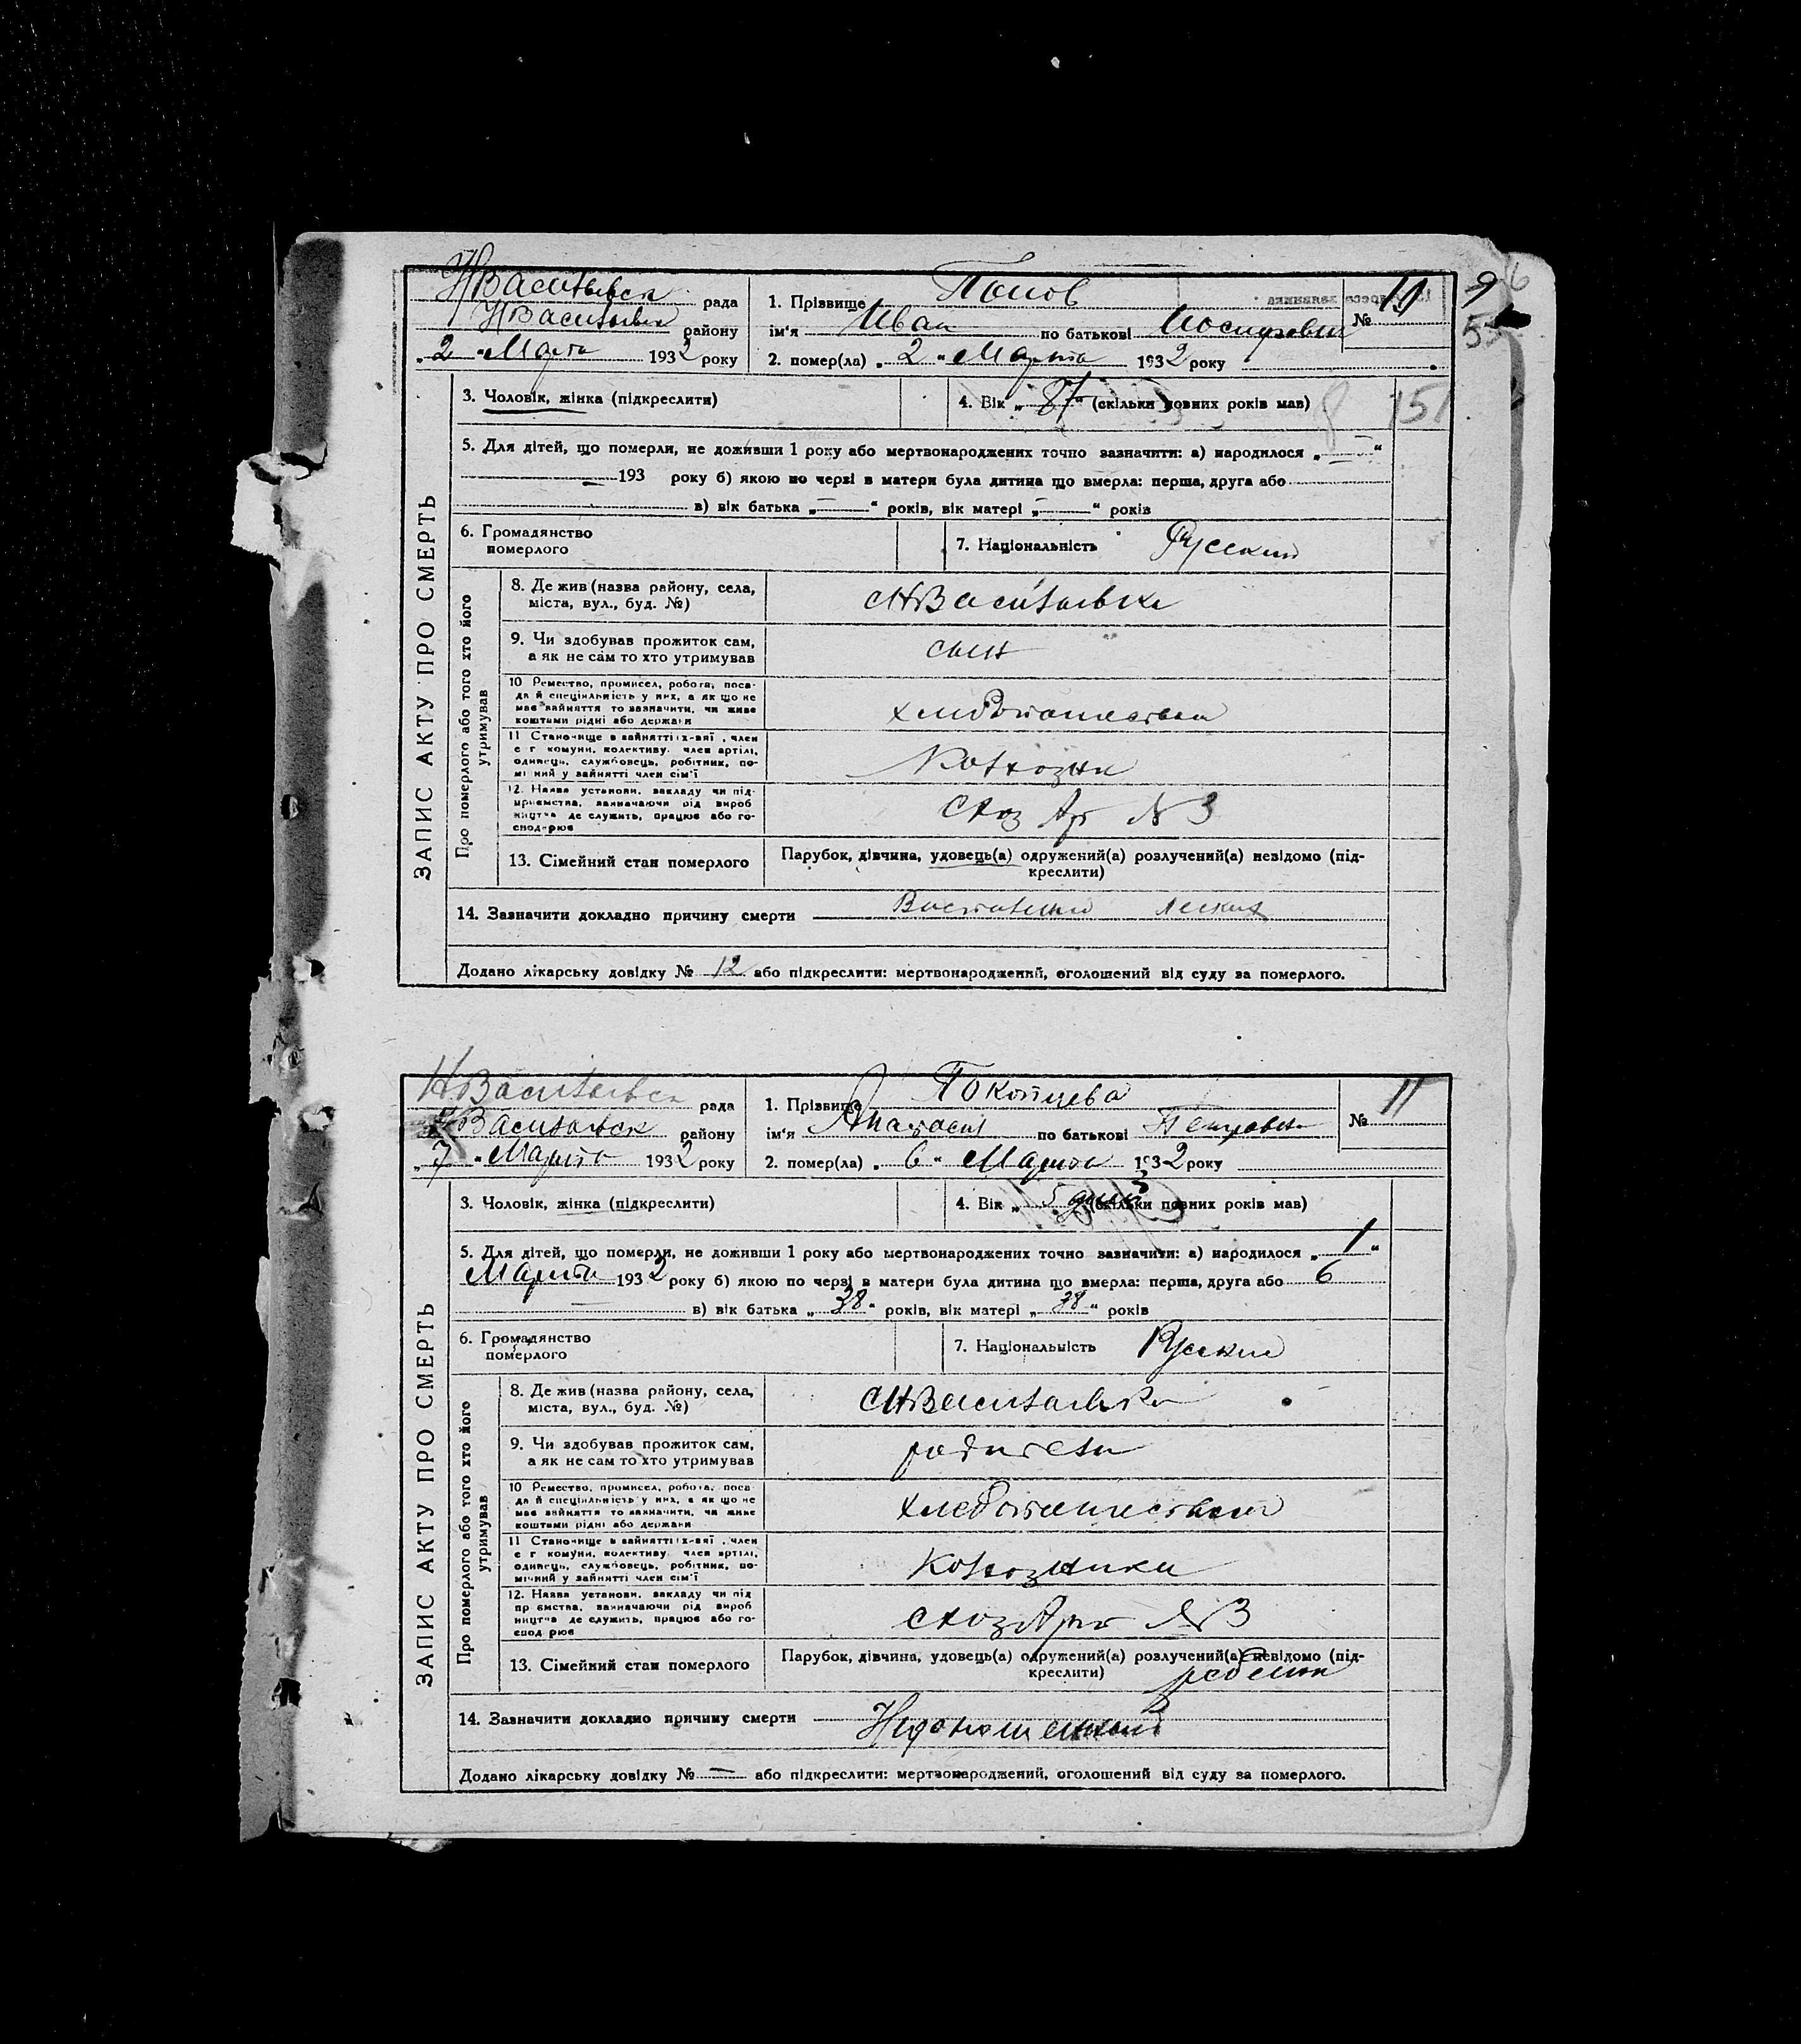 НВасильевск рада
НВасильевск району
„2“ Марта 1932 року
1. Прізвище Попов
ім'я Иван по батькові Иосифович
2. помер(ла) „2“ Марта 1932 року
№ 10
9
55
3. Чоловік, жінка (підкреслити)
4. Вік „87“ (скільки повних років мав)
8 151
5. Для дітей, що померли, не доживши 1 року або мертвонароджених точно зазначити: а) народилося „—“
— 193 року б) якою по черзі в матери була дитина що вмерла: перша, друга або
в) вік батька „—“ років, вік матері „—“ років
6. Громадянство
померлого
7. Національність Русский
ЗАПИС АКТУ ПРО СМЕРТЬ
Про померлого або того хто його
утримував
8. Де жив (назва району, села,
міста, вул., буд. №)
сНВасильевка
9. Чи здобував прожиток сам,
а як не сам то хто утримував
сын
10 Ремество, промисел, робота, поса-
да й спеціяльність у них, а як що не
має зайняття то зазначити, чи живе
коштами рідні або держави
хлебопашество
11 Становище в зайнятті х-ві , член
с г комуни, колективу член артілі,
одинець, службовець, робітник, по-
мічний у зайнятті член сім'ї
Колхозни
12. Назва установи, закладу чи під-
приємства, зазначаючи рід вироб
ництва де служить, працює або го-
сподарює
СХоз Ар № 3
13. Сімейний стан померлого
Парубок, дівчина, удовець(а) одружений(а) розлучений(а) невідомо (під-
креслити)
14. Зазначити докладно причину смерти легких
Додано лікарську довідку № 12 або підкреслити: мертвонароджений, оголошений від суду за померлого.
НВасильевск рада
НВасильевск району
„7“ Марта 1932 року
1. Прізвище
ім'я Анастасия по батькові Петровна
2. помер(ла) „6“ Марта 1932 року
№ 11
3. Чоловік, жінка (підкреслити)
4. Вік „5 дней“ (скільки повних років мав)
5. Для дітей, що померли, не доживши 1 року або мертвонароджених точно зазначити: а) народилося „1“
Марта 1932 року б) якою по черзі в матери була дитина що вмерла: перша, друга або 6
— в) вік батька „38“ років, вік матері „38“ років
6. Громадянство
померлого
7. Національність Русские
ЗАПИС АКТУ ПРО СМЕРТЬ
Про померлого або того хто його
утримував
8. Де жив (назва району, села,
міста, вул., буд. №)
сНВасильевка
9. Чи здобував прожиток сам,
а як не сам то хто утримував
родители
10 Ремество, промисел, робота, поса-
да й спеціяльність у них, а як що не
має зайняття то зазначити, чи живе
коштами рідні або держави
хлебопашество
11 Становище в зайнятті х-ві , член
с г комуни, колективу член артілі,
одинець, службовець, робітник, по-
мічний у зайнятті член сім'ї
Колхозники
12. Назва установи, закладу чи під
приємства, зазначаючи рід вироб
ництва де служить, працює або го-
сподарює
СХоз Арт № 3
13. Сімейний стан померлого
Парубок, дівчина, удовець(а) одружений(а) розлучений(а) невідомо (під-
креслити) ребенок
14. Зазначити докладно причину смерти Недоношенный
Додано лікарську довідку № — або підкреслити: мертвонароджений, оголошений від суду за померлого.